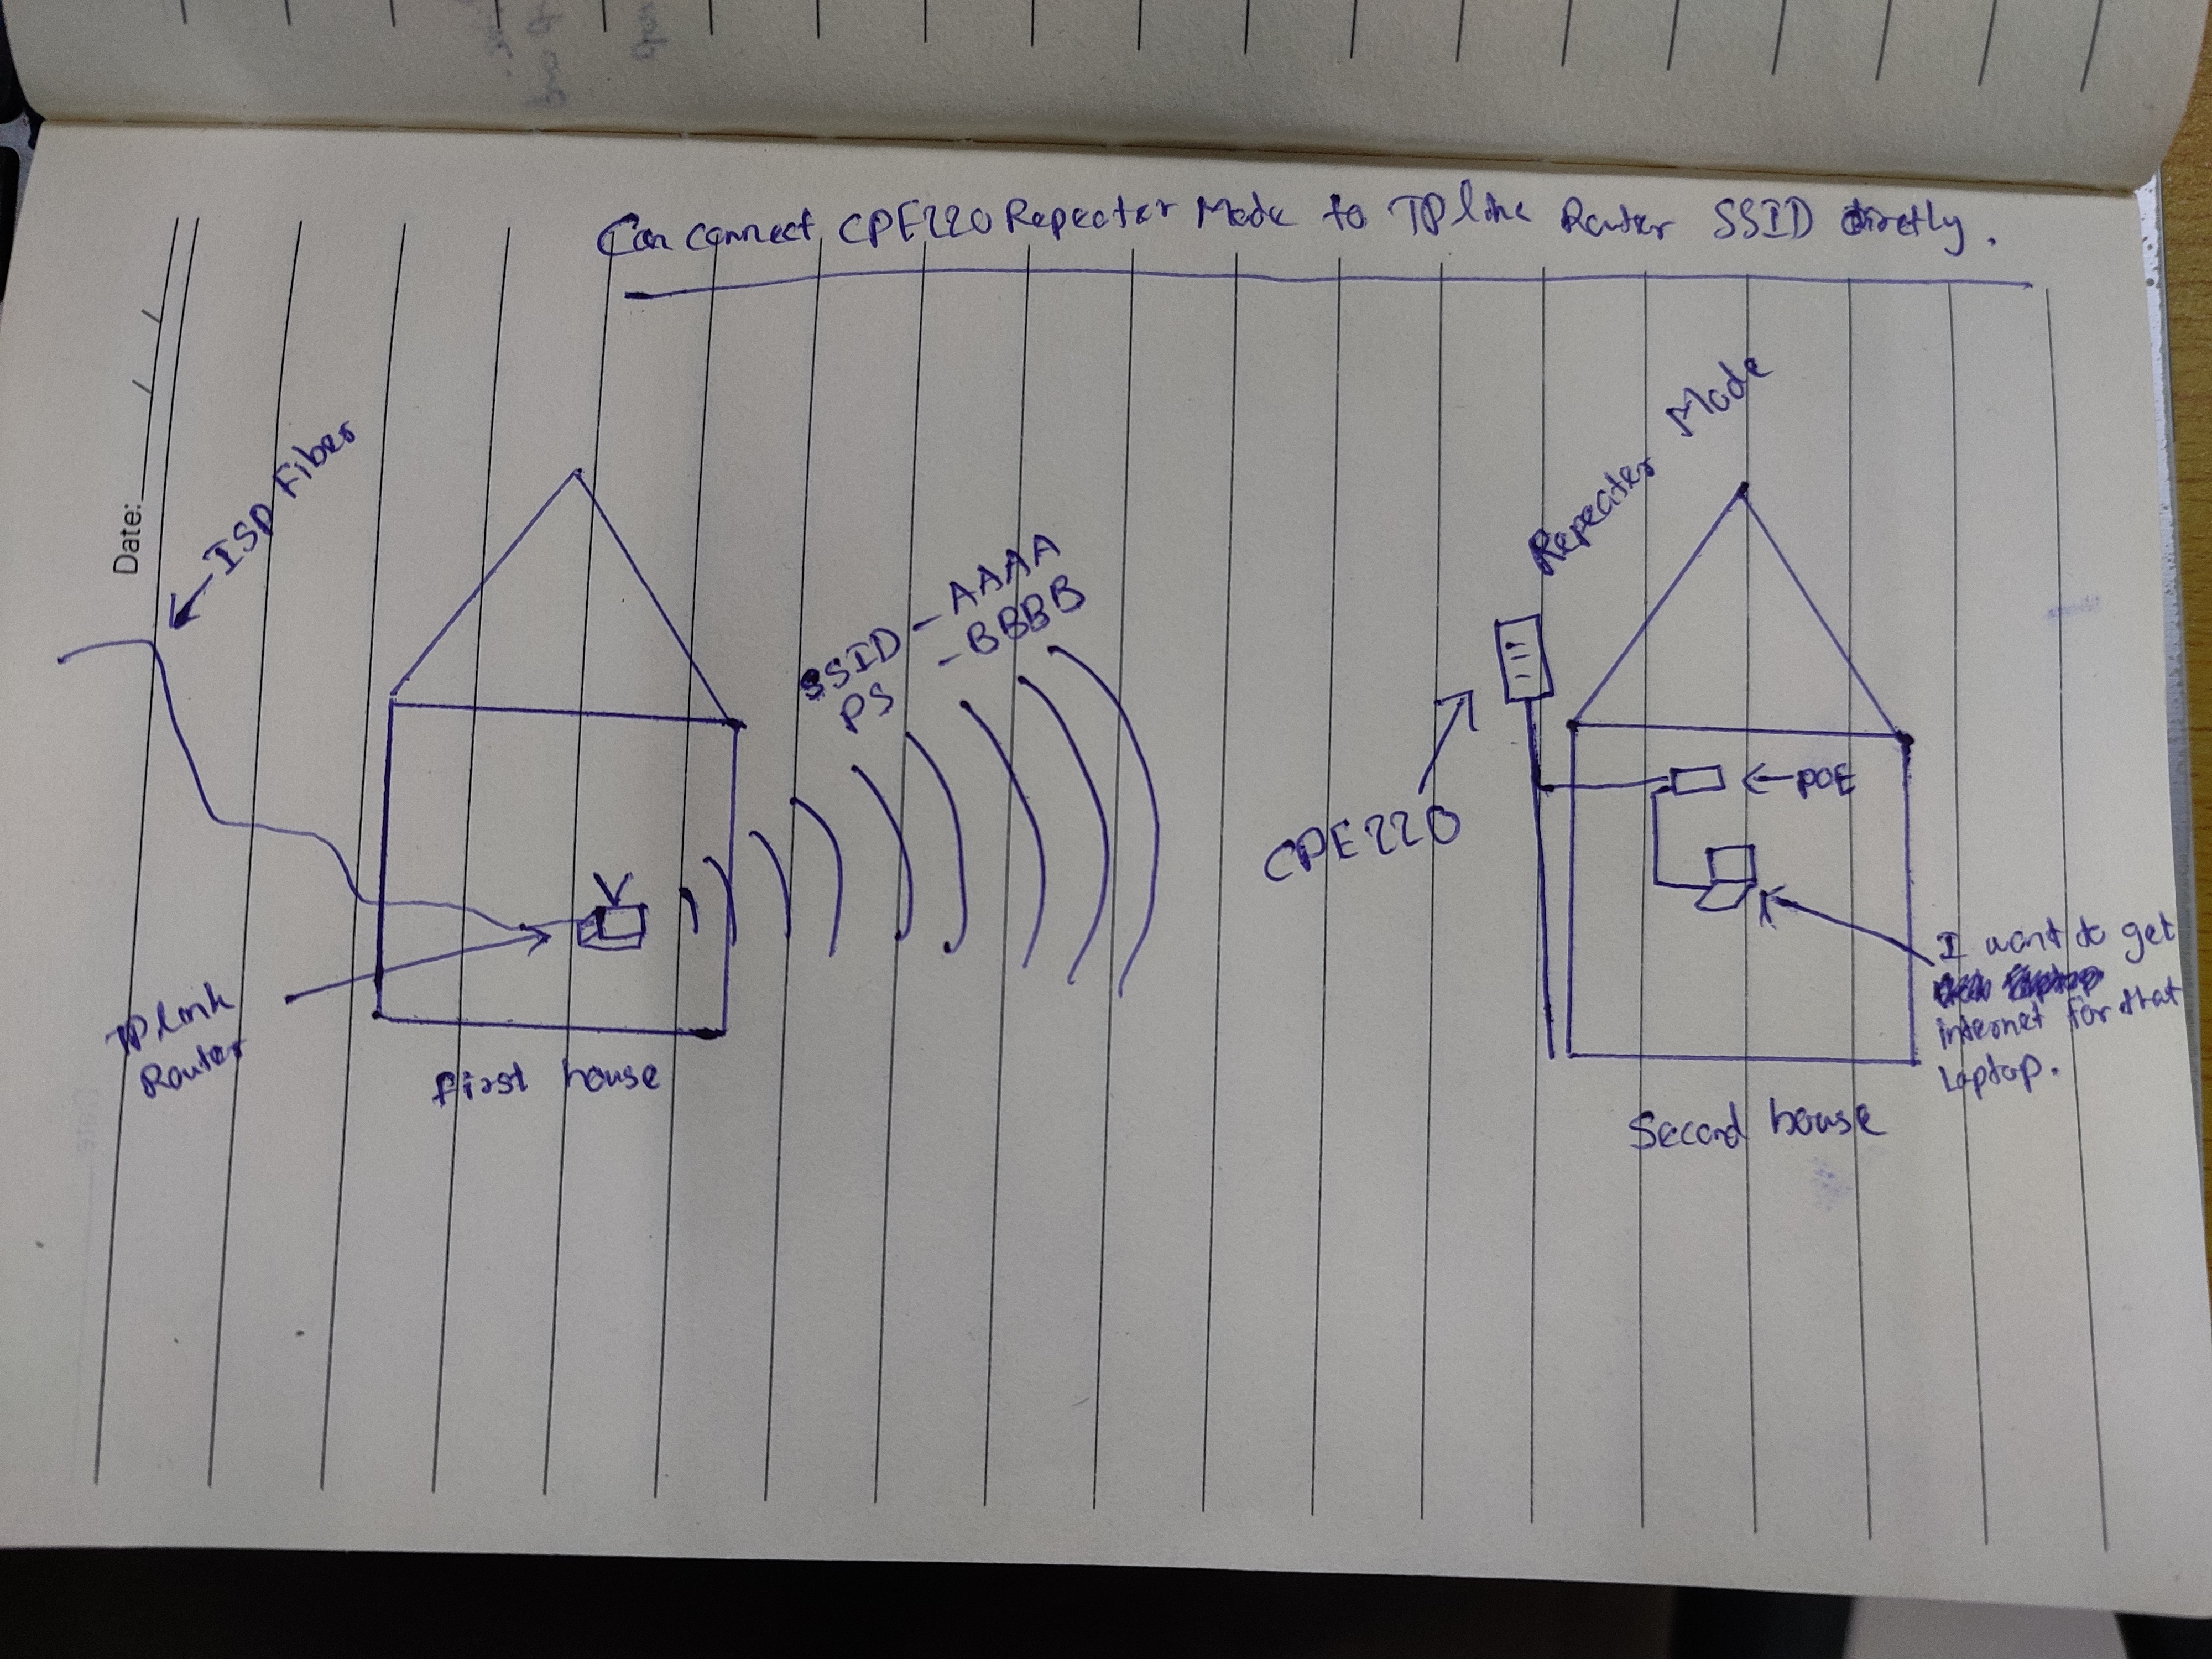 Can connect CPE220 Repeater Mode to TP link Router SSID directly.
Date:
←ISP Fiber
SSID - AAAA
PS - BBBB
Repeater Mode
CPE220
←POE
I want to get
internet for that
Laptop.
TP Link
Router
First house
Second house